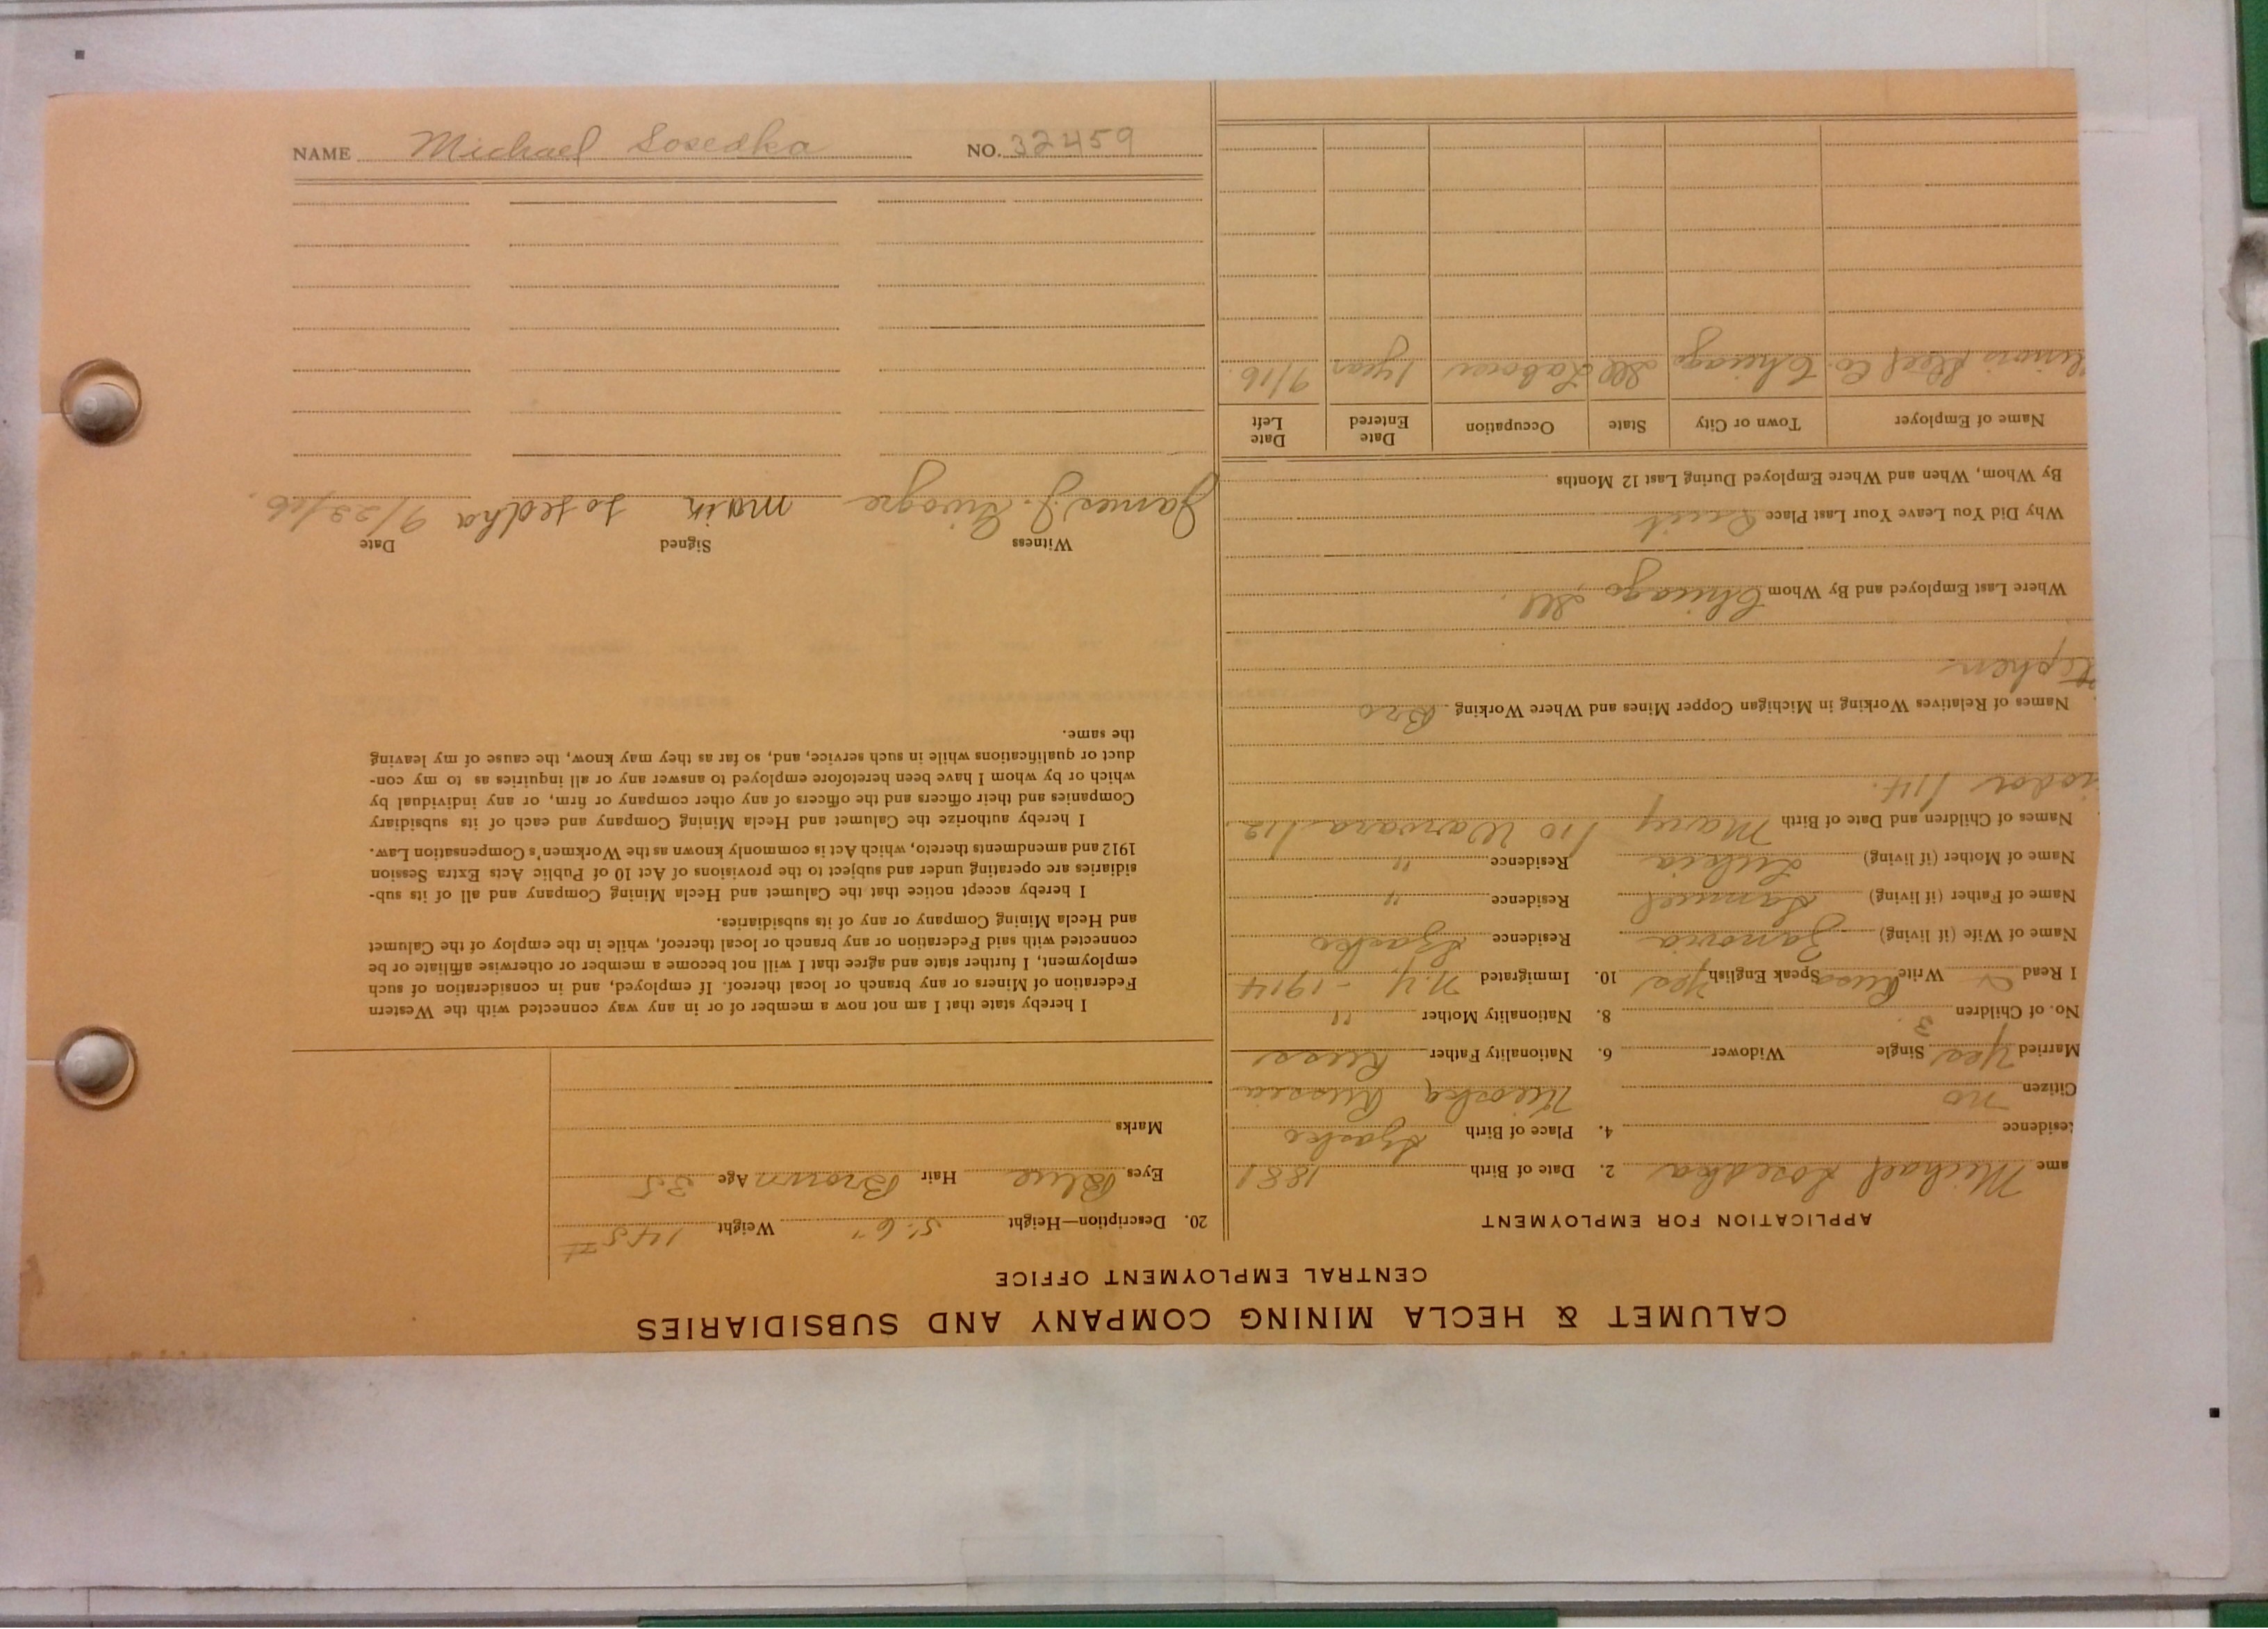 NAME Michael Sosedka NO. 32459
CALUMET & HECLA MINING COMPANY AND SUBSIDIARIES
CENTRAL EMPLOYMENT OFFICE
APPLICATION FOR EMPLOYMENT
ame Michael Sosedka 2. Date of Birth 1881
esidence 4. Place of Birth
Citizen no Russia
Married Yes Single Widower 6. Nationality Father Russ
No. of Children 3 8. Nationality Mother "
I Read Write Russ Speak English Yes 10. Immigrated N.Y. - 1914
Name of Wife (if living) Residence
Name of Father (if living) Samuel Residence "
Name of Mother (if living) Residence "
Names of Children and Date of Birth Mary /10 Warvara /12
/14.
Names of Relatives Working in Michigan Copper Mines and Where Working Bro
tephen
Where Last Employed and By Whom Chicago, Ill.
Why Did You Leave Your Last Place Quit
By Whom, When and Where Employed During Last 12 Months
Name of Employer Town or City State Occupation Date Entered Date Left
llinois Steel Co. Chicago Ill Laborer 1 year 9/16
20. Description—Height 5' 6" Weight 145#
Eyes Blue Hair Brown Age 35
Marks
I hereby state that I am not now a member of or in any way connected with the Western
Federation of Miners or any branch or local thereof. If employed, and in consideration of such
employment, I further state and agree that I will not become a member or otherwise affiliate or be
connected with said Federation or any branch or local thereof, while in the employ of the Calumet
and Hecla Mining Company or any of its subsidiaries.
I hereby accept notice that the Calumet and Hecla Mining Company and all of its sub-
sidiaries are operating under and subject to the provisions of Act 10 of Public Acts Extra Session
1912 and amendments thereto, which Act is commonly known as the Workmen's Compensation Law.
I hereby authorize the Calumet and Hecla Mining Company and each of its subsidiary
Companies and their officers and the officers of any other company or firm, or any individual by
which or by whom I have been heretofore employed to answer any or all inquiries as to my con-
duct or qualifications while in such service, and, so far as they may know, the cause of my leaving
the same.
Witness Signed Date
James J. sosedka 9/22/16.